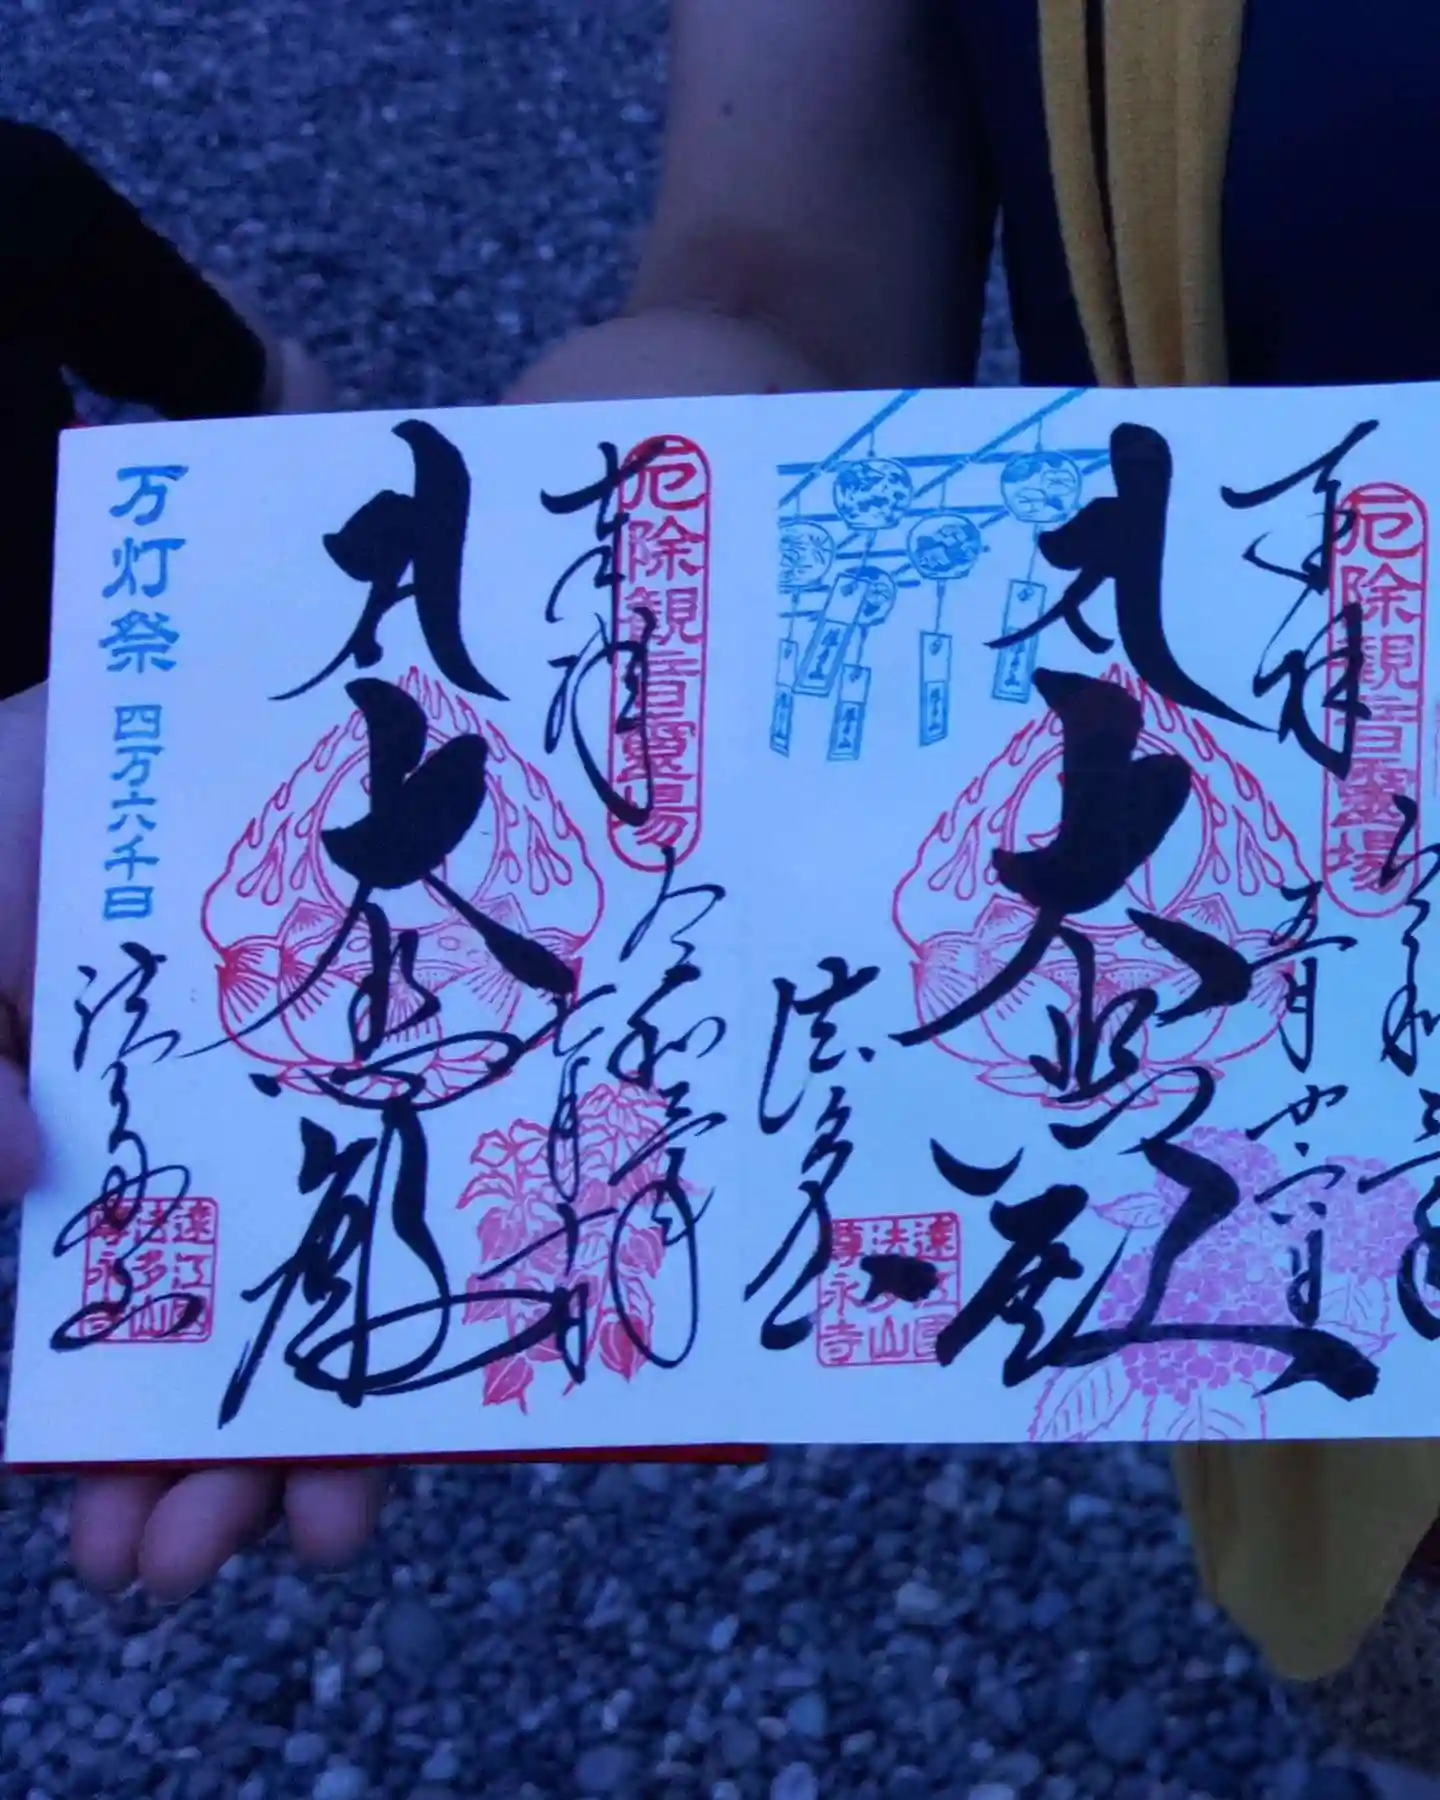 厄除観音霊場
奉拝
令和三年
五月廿六日
大悲殿
法多山
遠江國
法多山
尊永寺
厄除観音霊場
奉拝
令和三年
七月十日
大悲殿
法多山
遠江國
法多山
尊永寺
万灯祭 四万六千日